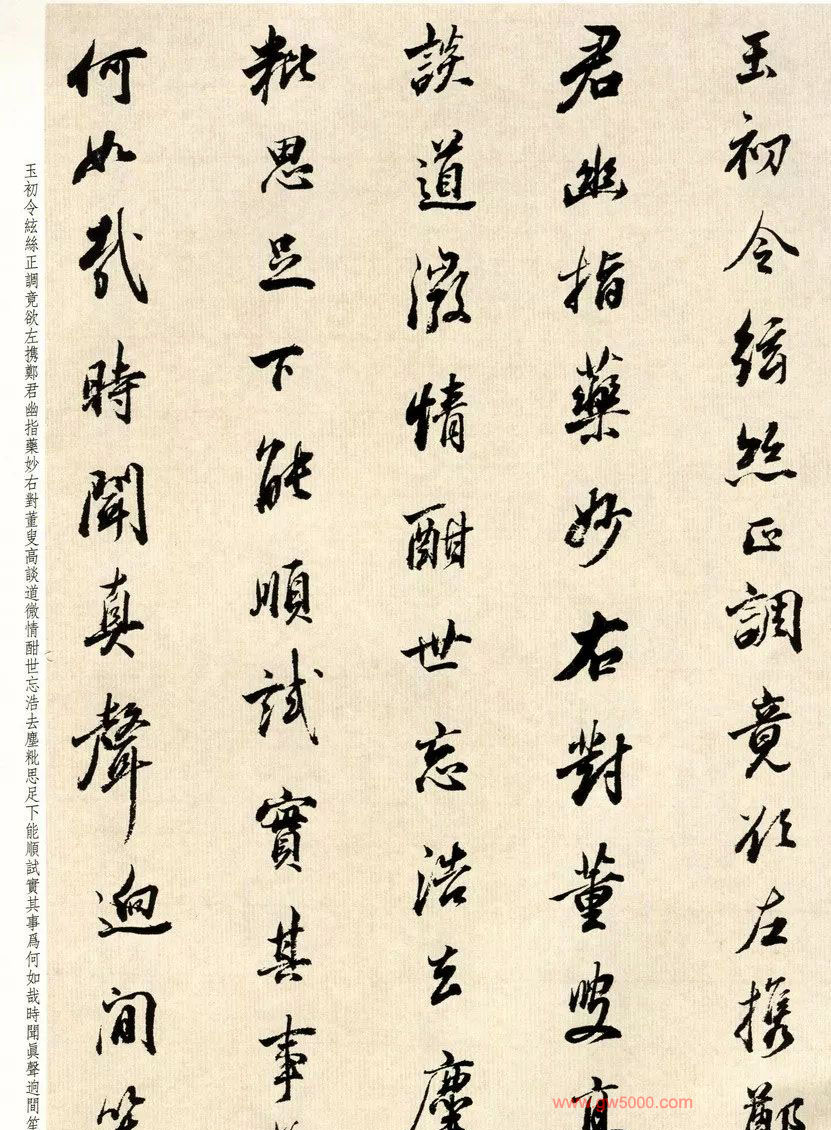 玉初令絃絲正調竟欲左携鄭
君幽指藥妙右對董叟高
談道微情酣世忘浩去塵
粃思足下能順試實其事
何如哉時聞真聲逈間笙
玉初令絃絲正調竟欲左携鄭君幽指藥妙右對董叟高談道微情酣世忘浩去塵粃思足下能順試實其事爲何如哉時聞眞聲逈間笙
www.gw5000.com